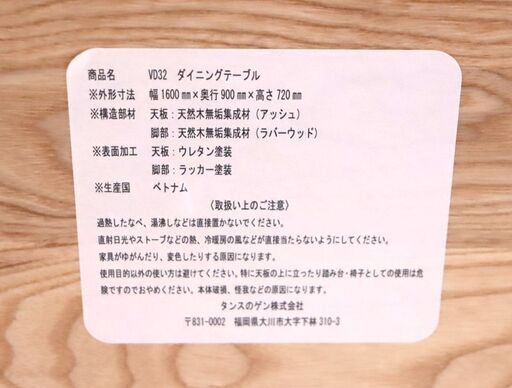 商品名 VD32 ダイニングテーブル
※外形寸法 幅1600㎜×奥行900㎜×高さ720㎜
※構造部材 天板:天然木無垢集成材(アッシュ)
脚部:天然木無垢集成材(ラバーウッド)
※表面加工 天板:ウレタン塗装
脚部:ラッカー塗装
※生産国 ベトナム
〈取扱い上のご注意〉
過熱したなべ、湯沸しなどは直接置かないでください。
直射日光やストーブなどの熱、冷暖房の風などが直接当たらないようにしてください。
家具がゆがんだり、変色したりする原因になります。
使用目的以外の使い方は避けてください。特に天板の上に立ったり踏み台・椅子としての使用は危
険ですのでおやめください。本体破損、怪我などの原因になります。
タンスのゲン株式会社
〒831-0002 福岡県大川市大字下林310-3